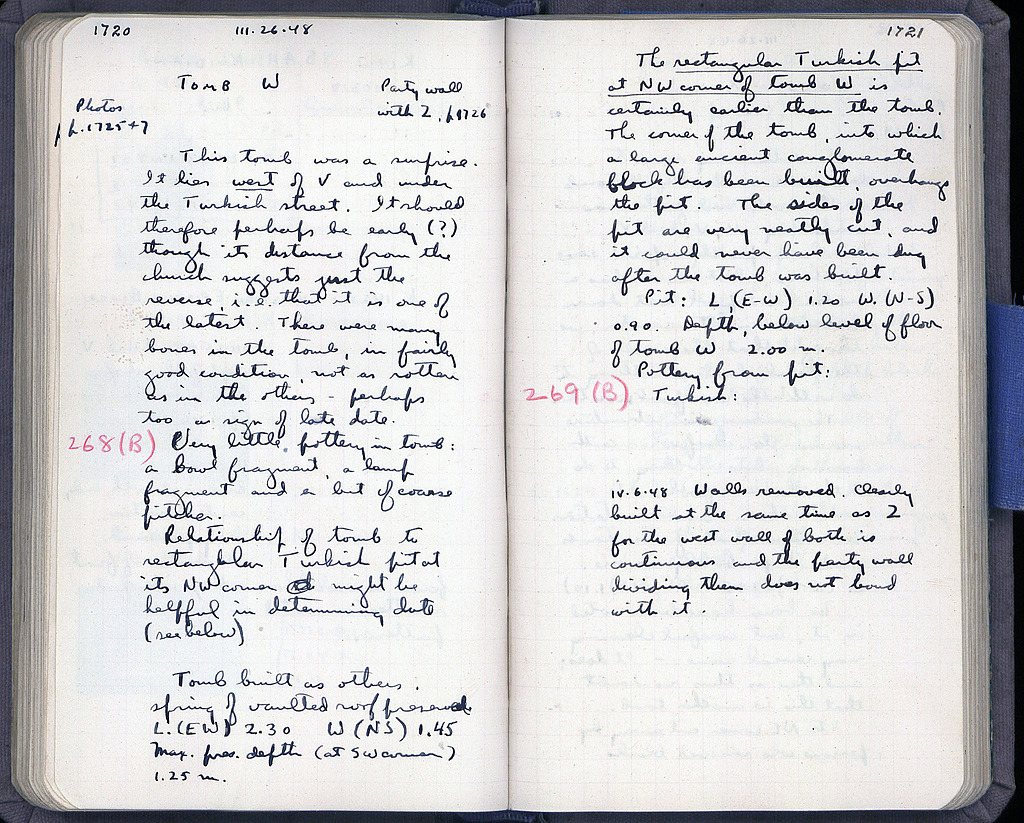 1720
III.26.48
TOMB W
Party wall
with Z, p.1726
Photos
pp.1725+7
This tomb was a surprise.
It lies west of V and under
the Turkish street. It should
therefore perhaps be early (?)
though its distance from the
church suggests just the
reverse i.e. that it is one of
the latest. There were many
bones in the tomb, in fairly
good condition, not as rotten
as in the others - perhaps
too a sign of late date.
268(B) Very little pottery in tomb:
a bowl fragment, a lamp
fragment and a bit of coarse
pitcher.
Relationship of tomb to
rectangular Turkish pit at
its NW corner might be
helpful in determining date
(see below)
Tomb built as others.
spring of vaulted roof preserved
L.(EW) 2.30 W (NS) 1.45
Max. pres. depth (at SW corner)
1.25 m.
1721
The rectangular Turkish pit
at NW corner of tomb W is
certainly earlier than the tomb.
The corner of the tomb, into which
a large ancient conglomerate
block has been built, overhangs
the pit. The sides of the
pit are very neatly cut, and
it could never have been dug
after the tomb was built.
Pit: L.(E-W) 1.20 W.(N-S)
0.90. Depth, below level of floor
of tomb W 2.00 m.
Pottery from pit:
269(B) Turkish:
IV.6.48 Walls removed. Clearly
built at the same time as Z
for the west wall of both is
continuous and the party wall
dividing them does not bond
with it.